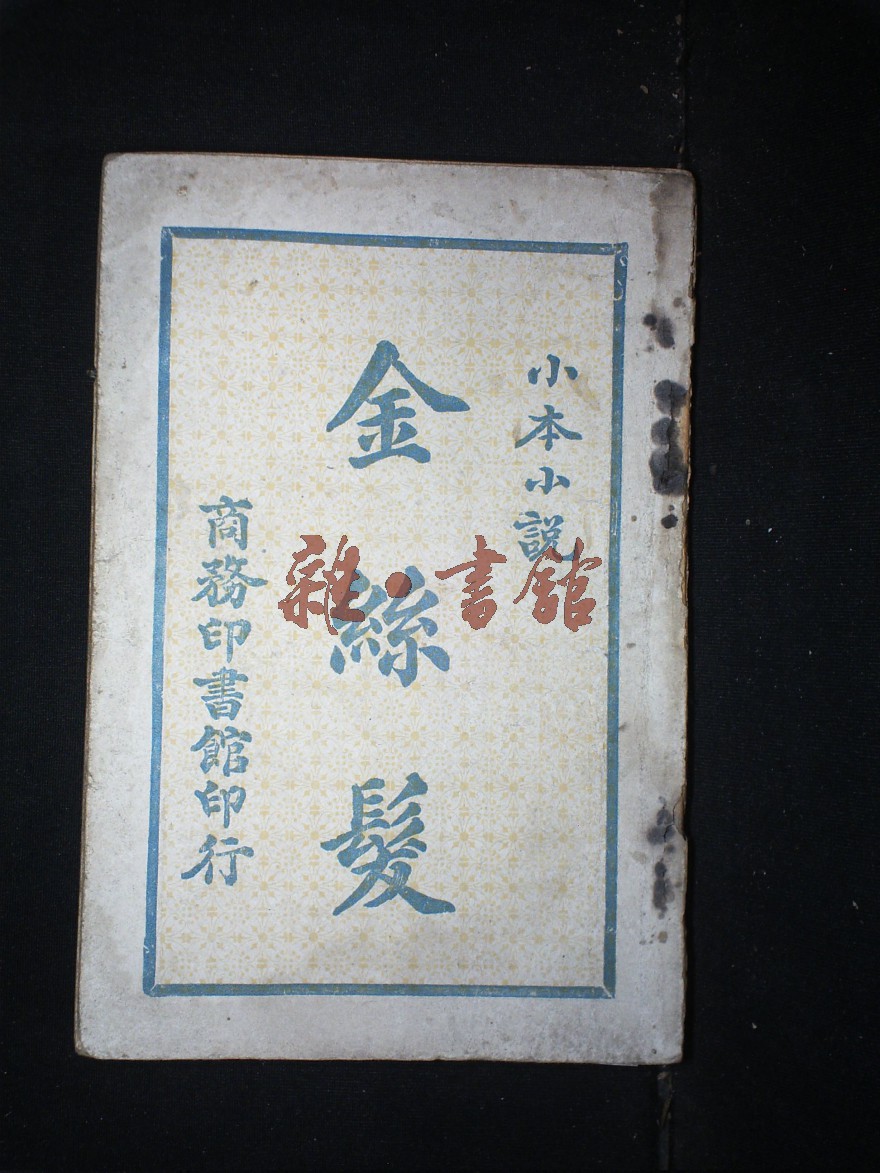 小本小説
金絲髮
商務印書館印行
雜·書館